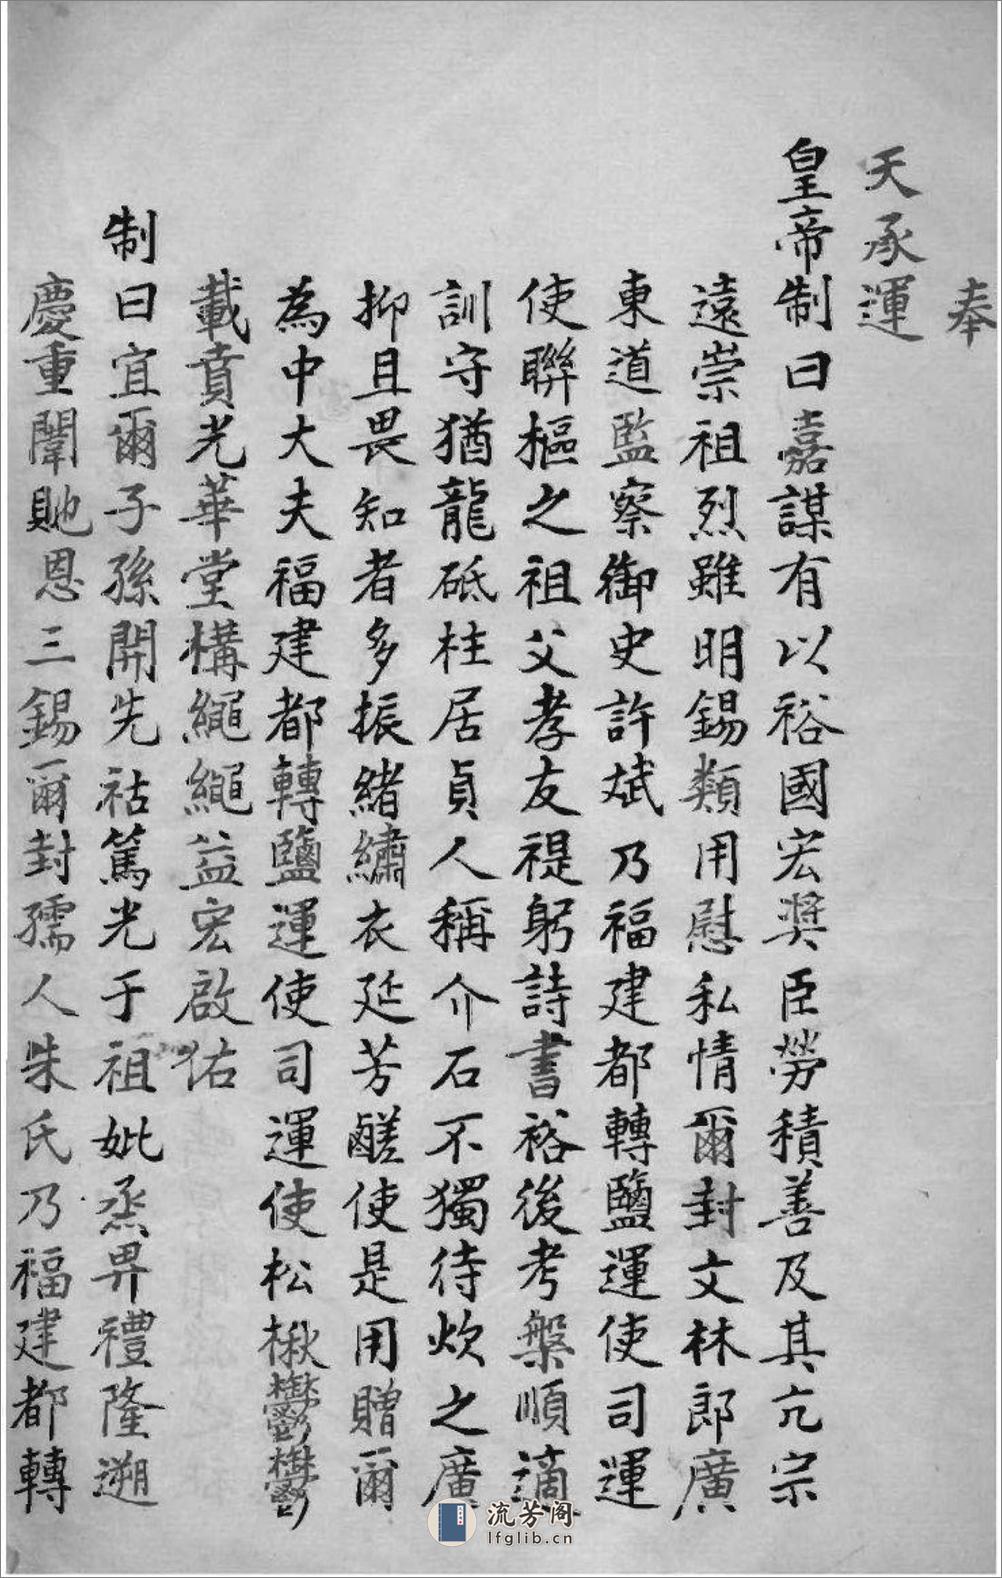 奉
天承運
皇帝制曰嘉謀有以裕國宏奨臣勞積善及其亢宗
遠崇祖烈雖明錫類用慰私情爾封文林郎廣
東道監察御史許斌乃福建都轉鹽運使司運
使聯樞之祖父孝友禔躬詩書裕後考槃順適
訓守猶龍砥柱居貞人稱介石不獨待炊之廣
抑且畏知者多振緒繡衣延芳鹺使是用贈爾
為中大夫福建都轉鹽運使司運使松楸鬱鬱
載賁光華堂構繩繩益宏啟佑
制曰宜爾子孫開先祜篤光于祖妣烝畀禮隆遡
慶重闈貤恩三錫爾封孺人朱氏乃福建都轉
流芳阁
lfglib.cn